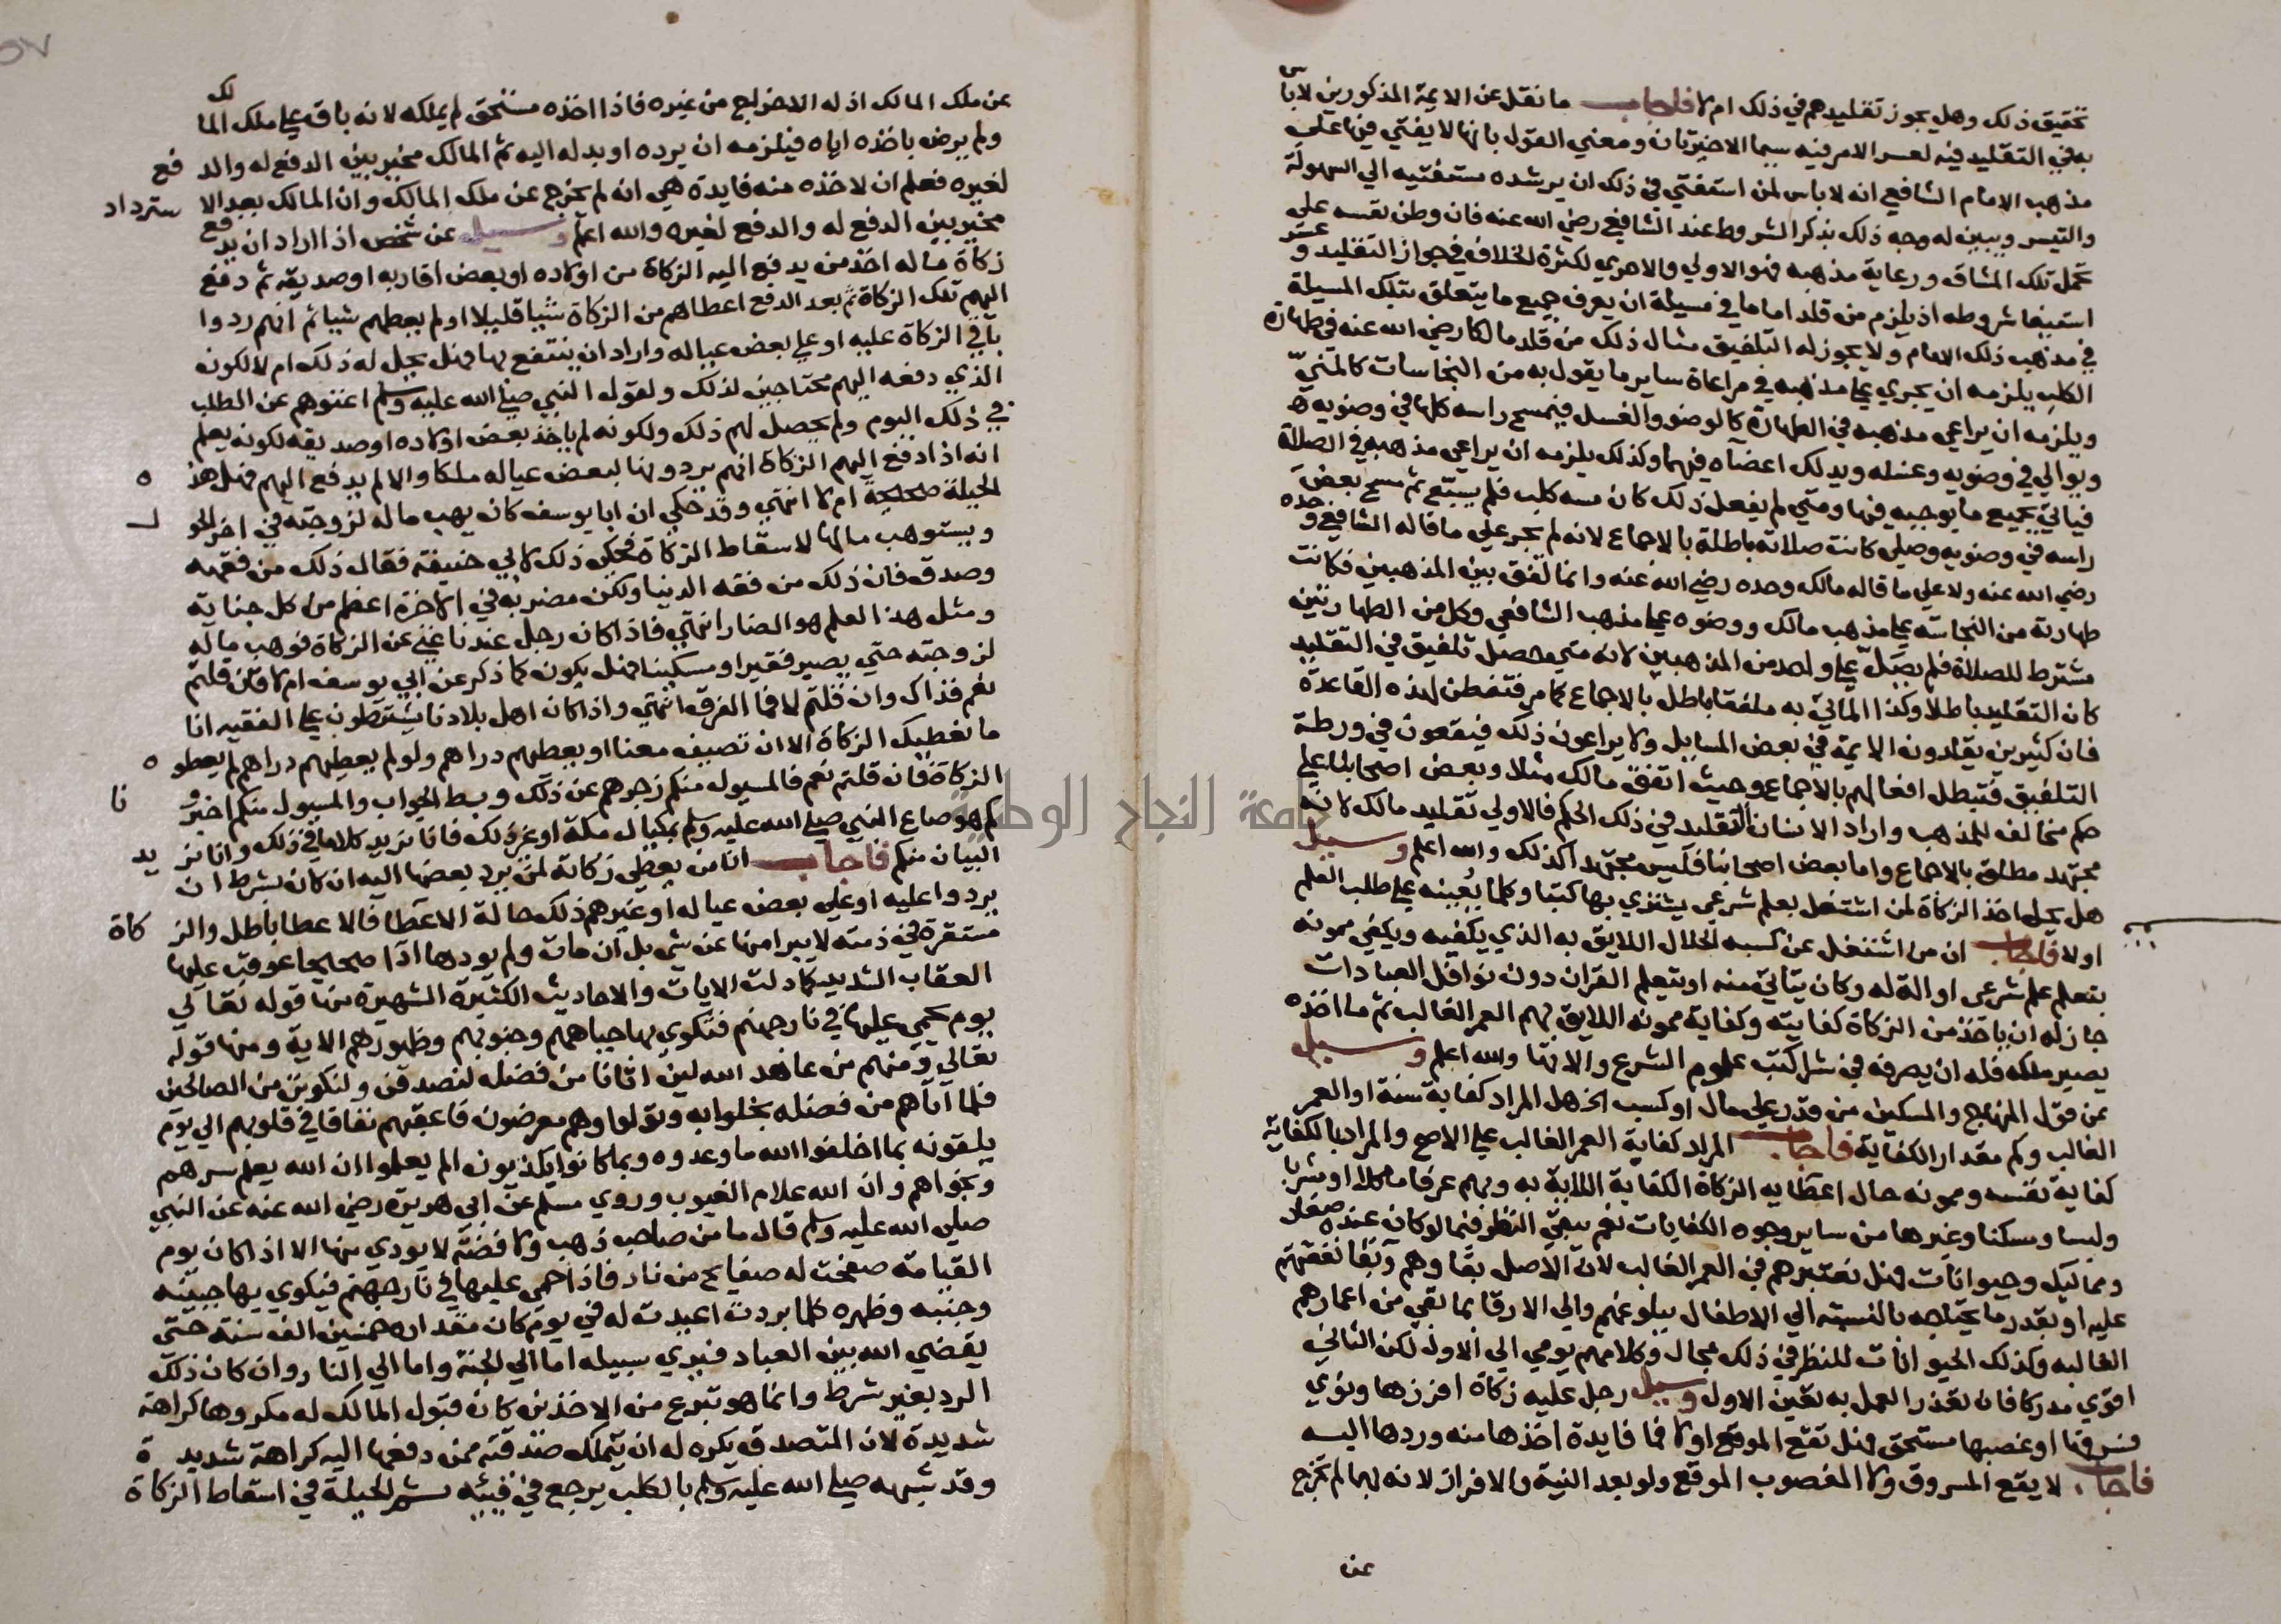 تحقيق ذلك وهل يجوز تقليدهم في ذلك ام لا فاجاب ما نقل عن الايمة المذكورين لا باس
به في التقليد فيه لعسر الامر فيه سيما الاخيرتان ومعني القول بانها لا يفتي فيها علي
مذهب الامام الشافعي انه لا باس لمن استفتي في ذلك ان يرشده مستفتيه الي السهولة
والتيسر ويبين له وجه ذلك بذكر الشروط عند الشافعي رضي الله عنه فان وطن نفسه علي
تحمل تلك المشاق ورعاية مذهبه فهو الاولي والاحري لكثرة الخلاف في جواز التقليد وعسر
استيفا شروطه اذ يلزم من قلد اماما في مسيلة ان يعرف جميع ما يتعلق بتلك المسيلة
في مذهب ذلك الامام ولا يجوز له التلفيق مثال ذلك من قلد مالكا رضي الله عنه في طهارة
الكلب يلزمه ان يجري علي مذهبه في مراعاة ساير ما يقول به من النجاسات كالمني
ويلزمه ان يراعي مذهبه في الطهارة كالوضو والغسل فيمسح راسه كلها في وضويه
ويوالي في وضويه وغسله ويدلك اعضاه فيهما وكذلك يلزمه ان يراعي مذهبه في الصلاة
فياتي بجميع ما يوجبه فيها ومتي لم يفعل ذلك كان مسه كلب فلم يسبع ثم مسح بعض
راسه في وضويه وصلي كانت صلاته باطلة بالاجماع لانه لم يجر علي ما قاله الشافعي وحده
رضي الله عنه ولا علي ما قاله مالك وحده رضي الله عنه وانما لفق بين المذهبين فكانت
طهارته من النجاسة علي مذهب مالك ووضوه علي مذهب الشافعي وكل من الطهارتين
مشترط للصلاة فلم يصل علي واحد من المذهبين لانه متي حصل تلفيق في التقليد
كان التقليد باطلا وكذا الماتي به ملفقا باطل بالاجماع كما مر فتفطن لهذه القاعدة
فان كثيرين يقلدون الايمة في بعض المسايل ولا يراعون ذلك فيقعون في ورطة
التلفيق فتبطل افعالهم بالاجماع وحيث اتفق مالك مثلا وبعض اصحابنا علي
حكم مخالف للمذهب واراد الانسان التقليد في ذلك الحكم فالاولي تقليد مالك لانه
مجتهد مطلق بالاجماع واما بعض اصحابنا فليس مجتهدا كذلك والله اعلم وسيل
هل يحل اخذ الزكاة لمن اشتغل بعلم شرعي يشتري بها كتبا وكلما يعينه علي طلب العلم
اولا فاجاب ان من اشتغل عن كسبه الحلال اللايق به الذي يكفيه ويكفي ممونه
بتعلم علم شرعي او الة له وكان يتاتي منه او بتعلم القران دون نوافل العبادات
جاز له ان ياخذ من الزكاة كفايته وكفاية ممونه اللايق بهم العمر الغالب ثم ما اخذه
يصير ملكه فله ان يصرفه في شرا كتب علوم الشرع والاتها والله اعلم وسيل
عن قول المنهاج والمسكين من قدر علي مال او كسب الخ هل المراد كفاية سنة او العمر
الغالب وكم مقدار الكفاية فاجاب المراد كفاية العمر الغالب علي الاصح والمراد بالكفاية
كفاية نفسه وممونه حال اعطايه الزكاة الكفاية اللايقة به وبهم عرفا ماكلا ومشربا
ولبسا ومسكنا وغيرها من ساير وجوه الكفايات نعم يبقي النظر فيما لو كان عنده صغار
ومماليك وحيوانات فهل نعتبرهم في العمر الغالب لان الاصل بقاوهم وبقا نفقتهم
عليه او بقدر ما يحتاجه بالنسبة الي الاطفال ببلوغهم والي الارقا بما بقي من اعمارهم
الغالبه وكذلك الحيوانات للنظر في ذلك مجال وكلامهم يومي الي الاول لكن الثاني
اقوي مدركا فان تعذر العمل به تعين الاول وسيل رجل عليه زكاة افرزها ونوي
فسرقها او غصبها مستحق فهل تقع الموقع اولا فما فايدة اخذها منه وردها اليه
فاجاب لا يقع المسروق ولا المغصوب الموقع ولو بعد النية والافراز لانه بهما لم يخرج
عن
عن ملك المالك اذ له الاخراج من غيره فاذا اخذه مستحق لم يملكه لانه باق علي ملك المالك
ولم يرض باخذه اياه فيلزمه ان يرده او بدله اليه ثم المالك مخير بين الدفع له والدفع
لغيره فعلم ان لاخذه منه فايدة هي انه لم يخرج عن ملك المالك وان المالك بعد الاسترداد
مخير بين الدفع له والدفع لغيره والله اعلم وسيل عن شخص اذا اراد ان يدفع
زكاة ماله اخذ من يدفع اليه الزكاة من اولاده او بعض اقاربه او صديقه ثم دفع
اليهم تلك الزكاة ثم بعد الدفع اعطاهم من الزكاة شيا قليلا او لم يعطهم شيا ثم انهم ردوا
باقي الزكاة عليه او علي بعض عياله واراد ان ينتفع بها فهل يحل له ذلك ام لا لكونه
الذي دفعه اليهم محتاجين لذلك ولقول النبي صلي الله عليه وسلم اغنوهم عن الطلب
في ذلك اليوم ولم يحصل لهم ذلك ولكونه لم ياخذ بعض اولاده او صديقه لكونه يعلم
انه اذا دفع اليهم الزكاة انهم يردونها لبعض عياله ملكا والا لم يدفع اليهم فهل هذه
الحيلة صحيحة ام لا انتهي وقد حكي ان ابا يوسف كان يهب ماله لزوجته في اخر الحول
ويستوهب مالها لاسقاط الزكاة فحكي ذلك لابي حنيفة فقال ذلك من فقهه
وصدق فان ذلك من فقه الدنيا ولكن مضرته في الاخرة اعظم من كل جناية
ومثل هذا العلم هو الضار انتهي فاذا كان رجل عندنا غني عن الزكاة فوهب ماله
لزوجته حتي يصير فقيرا ومسكينا فهل يكون كما ذكر عن ابي يوسف ام لا فان قلتم
نعم فذاك وان قلتم لا فما الفرق انتهي واذا كان اهل بلادنا يشترطون علي الفقيه انا
ما نعطيك الزكاة الا ان تصيف معنا او يعطهم دراهم ولو لم يعطهم دراهم لم يعطوه
الزكاة فان قلتم نعم فالمسيول منكم زجرهم عن ذلك وبسط الجواب والمسيول منكم اخبرونا
كم هو صاع النبي صلي الله عليه وسلم بمكيال مكة او غير ذلك فانا نريد كلاما في ذلك وانا نريد
البيان منكم فاجاب انا من يعطي زكاته لمن يرد بعضها اليه ان كان بشرط ان
يردوا عليه او علي بعض عياله او غيرهم ذلك حالة الاعطا فالاعطا باطل والزكاة
مستقرة في ذمته لا يبرا منها عن شي بل ان مات ولم يودها ادا صحيحا عوقب عليها
العقاب الشديد كما دلت الايات والاحاديث الكثيرة الشهيرة منها قوله تعالي
يوم يحمي عليها في نار جهنم فتكوي بها جباههم وجنوبهم وظهورهم الاية ومنها قوله
تعالي ومنهم من عاهد الله لين اتانا من فضله لنصدقن ولنكونن من الصالحين
فلما اتاهم من فضله بخلوا به وتولوا وهم معرضون فاعقبهم نفاقا في قلوبهم الي يوم
يلقونه بما اخلفوا الله ما وعدوه وبما كانوا يكذبون الم يعلموا ان الله يعلم سرهم
ونجواهم وان الله علام الغيوب وروي مسلم عن ابي هريرة رضي الله عنه عن النبي
صلي الله عليه وسلم قال ما من صاحب ذهب ولا فضة لا يودي منها الا اذا كان يوم
القيامة صفحت له صفايح من نار فاذا احمي عليها في نار جهنم فيكوي بها جبينه
وجنبه وظهره كلما بردت اعيدت له في يوم كان مقداره خمسين الف سنة حتي
يقضي الله بين العباد فيري سبيله اما الي الجنة واما الي النار وان كان ذلك
الرد بغير شرط وانما هو تبرع من الاخذين كان قبول المالك له مكروها كراهة
شديدة لان المتصدق يكره له ان يتملك صدقته ممن دفعها اليه كراهة شديدة
وقد شبهه صلي الله عليه وسلم بالكلب يرجع في قيئه ثم الحيلة في اسقاط الزكاة
جامعة النجاح الوطنية